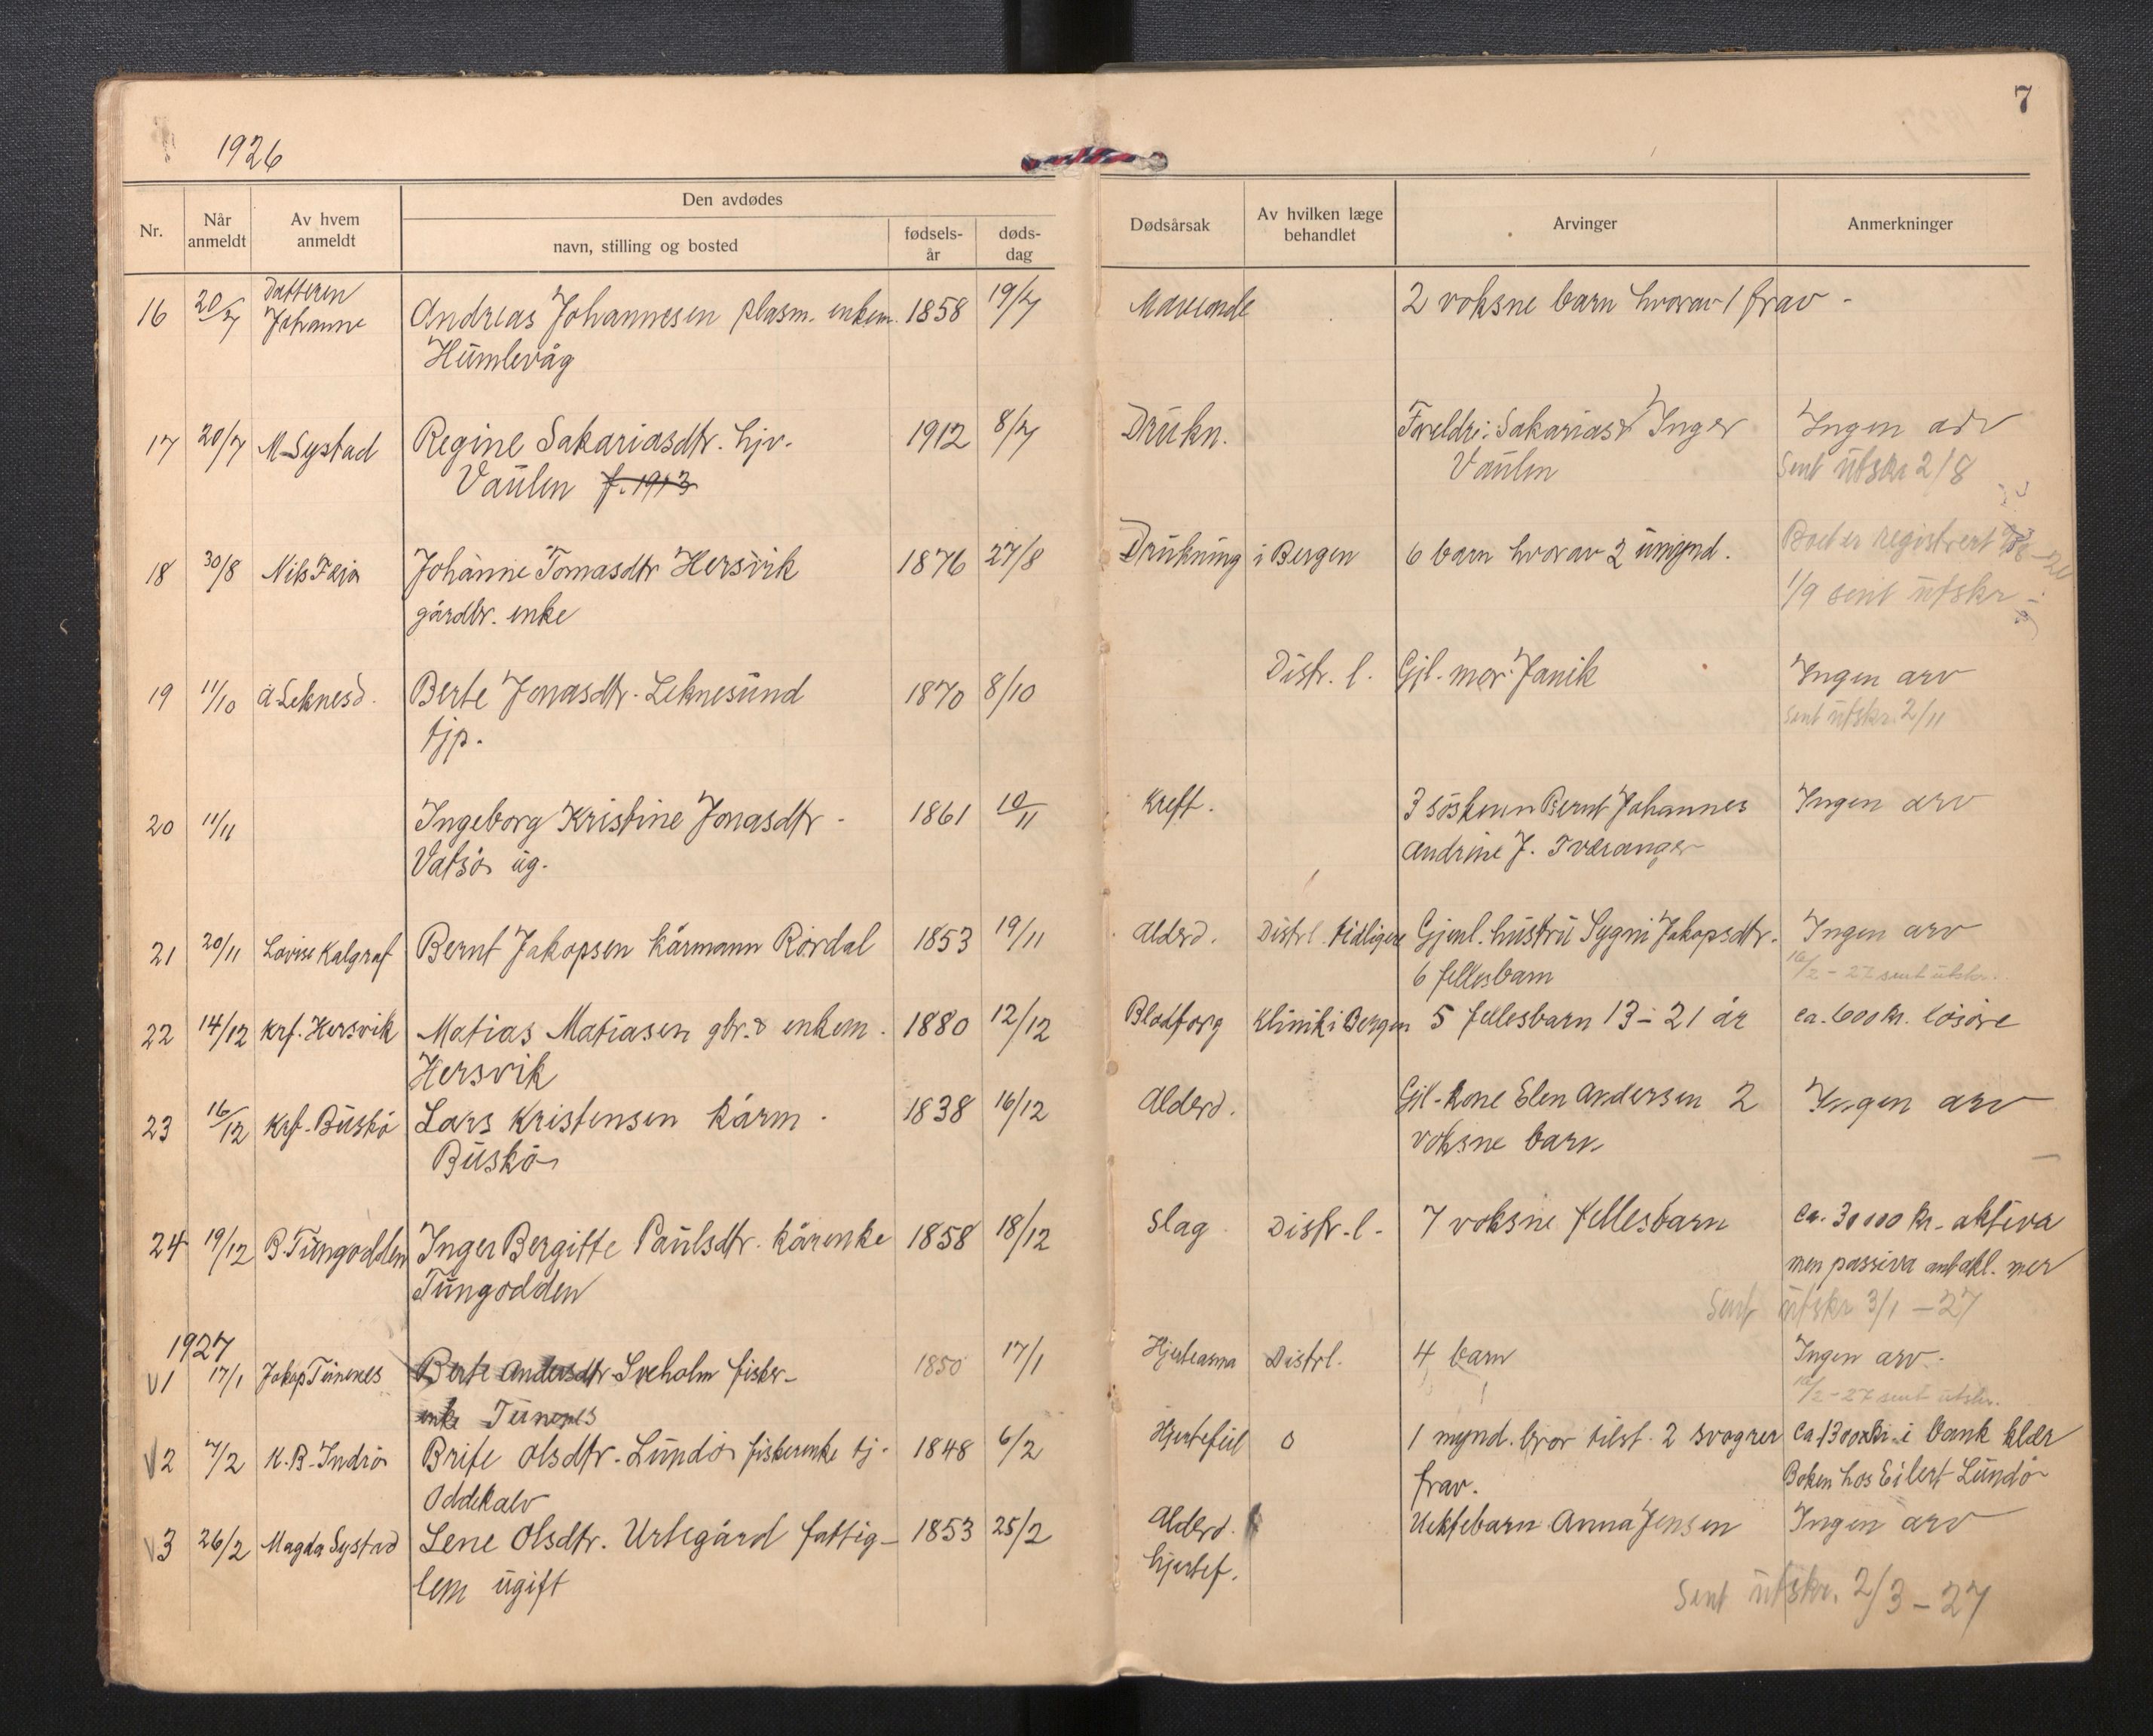 7
1926
Nr. Når anmeldt Av hvem anmeldt Den avdødes navn, stilling og bosted fødselsår dødsdag Dødsårsak Av hvilken læge behandlet Arvinger Anmerkninger
Datteren
16 20/7 Johanne Andreas Johannesen plasm. enkem. 1858 19/7 Maveonde 2 voksne barn hvorav 1 frav -
Humlevåg
17 20/7 M Systad Regine Sakariasdtr. hjv. 1912 8/7 Drukn. Foreldre: Sakarias & Inger Ingen arv
Vaulen f. 1913 Vaulen Sent utskr 2/8
18 30/8 Nils Færø Johanne Tomasdtr Hersvik 1876 27/8 Drukning i Bergen 6 barn hvorav 2 umynd. Boet er registrert
gårdbr. enke 1/9 sent utskr
19 11/10 A Leknesd. Berte Jonasdtr. Leknesund 1870 8/10 Distr. l. Gjl. mor: Janik Ingen arv
tjp. sent utskr. 2/11
20 11/11 Ingeborg Kristine Jonasdtr - 1861 10/11 Kreft. 3 sösken Bernt Johannes Ingen arv
Vatsø ug. Andrine J. Tværanger
21 20/11 Lovise Kalgraf Bernt Jakopsen kårmann Rørdal 1853 19/11 Alderd. Distr l. tidligere Gjenl. hustru Sygni Jakopsdtr. Ingen arv
6 fellesbarn 16/2 - 27 sent utskr.
22 14/12 Krf. Hersvik Matias Matiasen gbr. & enkem. 1880 12/12 Blodforg Klinik i Bergen 5 fellesbarn 13 - 21 år ca. 600 kr. løsøre
Hersvik
23 16/12 Krf. Buskø Lars Kristensen kårm. 1838 16/12 Alderd. Gjl. kone Elen Andersen 2 Ingen arv
Buskø voksne barn
24 19/12 B. Tungodden Inger Bergitte Paulsdtr. kårenke 1858 18/12 Slag Distr. l. 7 voksne fellesbarn ca. 30000 kr. aktiva
Tungodden men passiva antakl. mer
Sent utskr 3/1 - 27
1927
V1 17/1 Jakop Tunenes Berte Andersdtr Sveholm fisker- 1850 17/1 Hjerteasma Distrl. 4 barn Ingen arv.
enke Tunenes 16/2 - 27 sent utskr.
V2 7/2 K. B. Indrø Brite Olsdtr. Lundø fiskerenke tj. 1848 6/2 Hjertefeil 0 1 mynd. bror tilst. 2 svogrer ca 1300 kr. i bank klær
Oddekalv frav. Boken hos Eilert Lundø
V3 26/2 Magda Systad Lene Olsdtr. Urtegård fattig- 1853 25/2 Alderd. Uektebarn Anna Jensen Ingen arv
lem ugift hjertef.
Sent utskr. 2/3 - 27